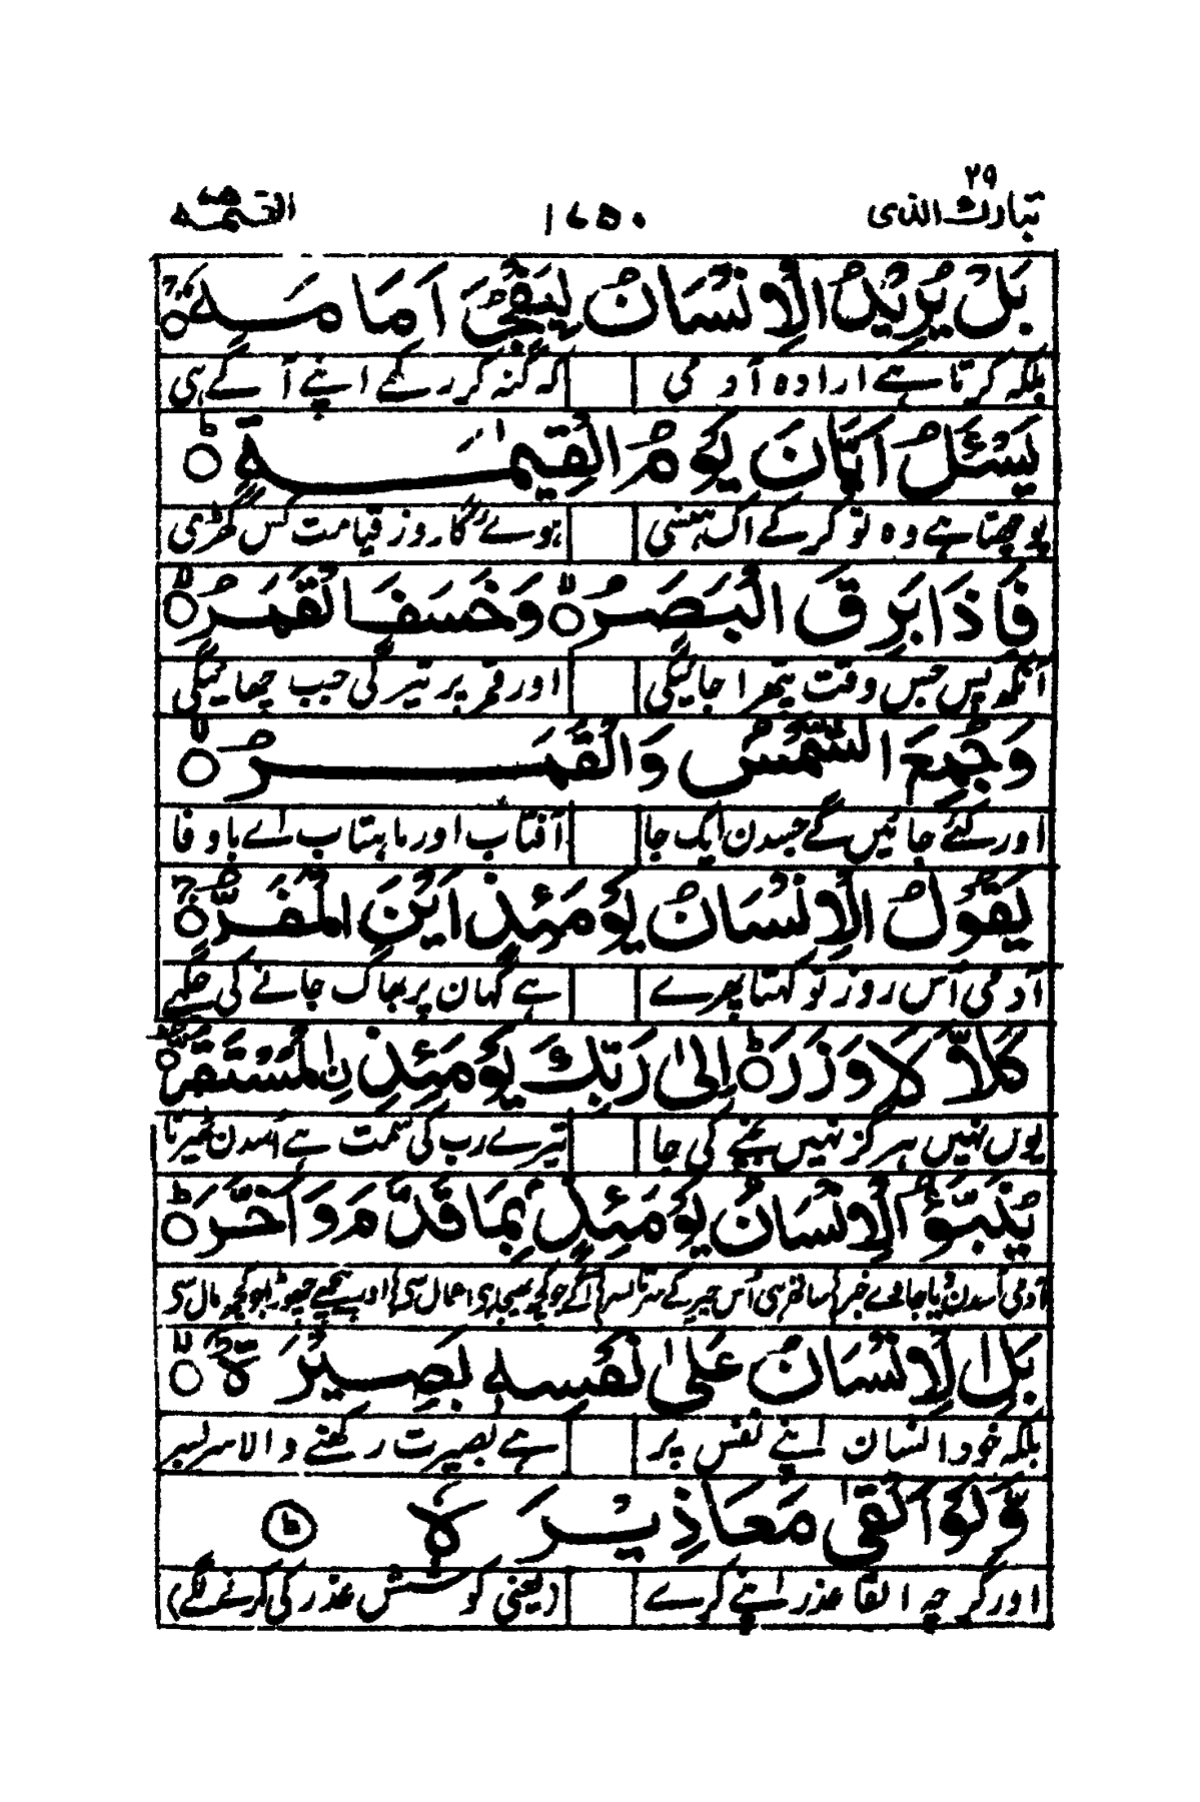 ٢٩
تبارك الذی ١٧٥٠ القیٰمة
بَلْ يُرِيْدُ الْاِنْسَانُ لِيَفْجُرَ اَمَامَــهٗ ۚ
بلکہ کرتا ہے ارادہ آدمی کہ گنہ کر رکھے اپنے آگے ہی
يَسْئَلُ اَيَّانَ يَوْمُ الْقِيٰمَــةِ ؕ
پوچھتا ہے وہ تو کر کے اک ہنسی ہوئے گا روز قیامت کس گھڑی
فَاِذَا بَرِقَ الْبَصَرُ ۙ وَخَسَفَ الْقَمَرُ ۙ
آنکھ پس جس وقت پتھرا جائیگی اور قمر پر تیرگی جب چھائیگی
وَجُمِعَ الشَّمْسُ وَالْقَمَــرُ ۙ
اور کئے جائیں گے جسدن ایک جا آفتاب اور ماہتاب اے باوفا
يَقُوْلُ الْاِنْسَانُ يَوْمَئِذٍ اَيْنَ الْمَفَرُّ ۚ
آدمی اُس روز تو کہتا پھرے ہے کہاں پر بھاگ جانے کی جگہے
كَلَّا لَا وَزَرَ ؕ اِلٰى رَبِّكَ يَوْمَئِذِ نِ الْمُسْتَقَرُّ ؕ
یوں نہیں ہرگز نہیں بچنے کی جا تیرے رب کی سمت ہے اُسدن ٹھیرنا
يُنَبَّؤُ الْاِنْسَانُ يَوْمَئِذٍ بِمَا قَدَّمَ وَاَخَّرَ ؕ
آدمی اُسدن
بَلِ الْاِنْسَانُ عَلٰى نَفْسِهٖ بَصِيْرَةٌ ۙ
بلکہ خود انسان اپنے نفس پر ہے بصیرت رکھنے والا سر بسر
وَّلَوْ اَلْقٰى مَعَاذِيْرَهٗ ؕ
اور گرچہ القا عذر اپنے کرے (یعنی کوشش عذر کی کرنے لگے)